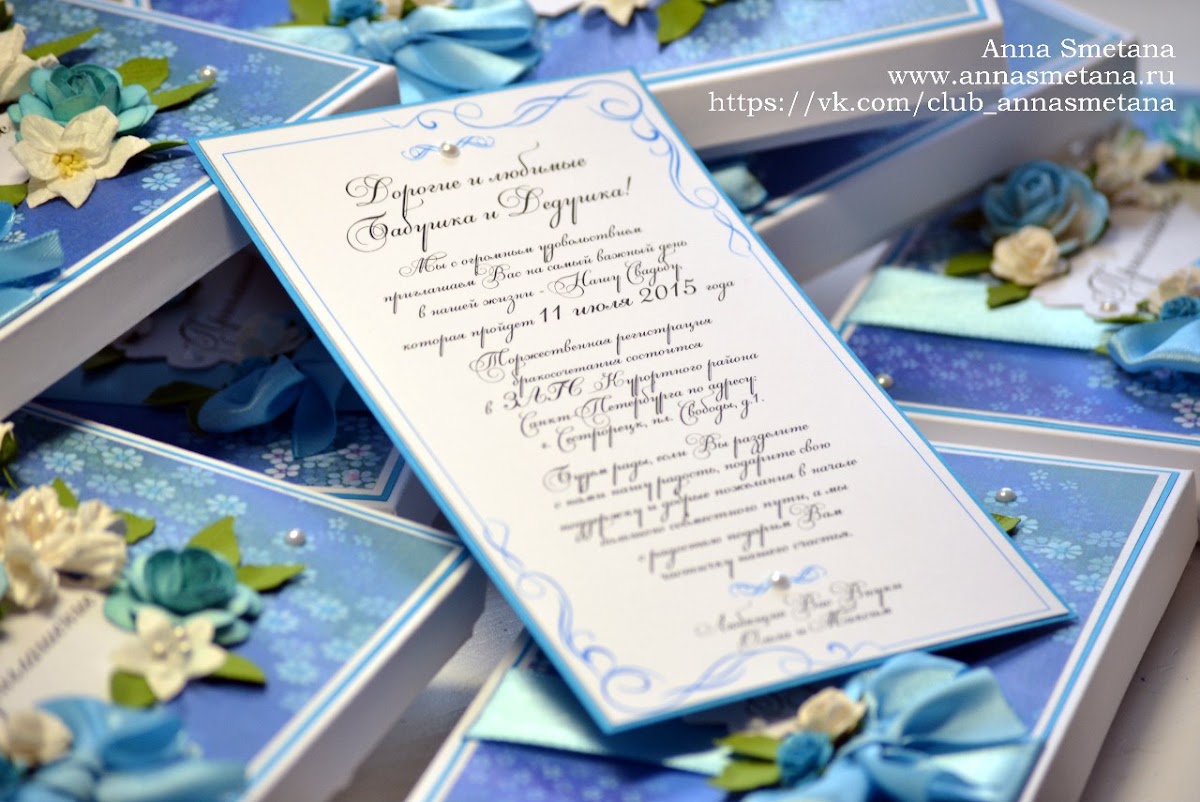 Anna Smetana
www.annasmetana.ru
https://vk.com/club_annasmetana
Дорогие и любимые
Бабушка и Дедушка!
Мы с огромным удовольствием
приглашаем Вас на самый важный день
в нашей жизни - Нашу Свадьбу,
которая пройдет 11 июля 2015 года
Торжественная регистрация
бракосочетания состоится
в ЗАГС Курортного района
Санкт-Петербурга по адресу:
г. Сестрорецк, пл. Свободы, д.1.
Будем рады, если Вы разделите
с нами нашу радость, подарите свою
поддержку и добрые пожелания в начале
нашего совместного пути, а мы
с радостью подарим Вам
частичку нашего счастья.
Любящие Вас Внуки
и Максим